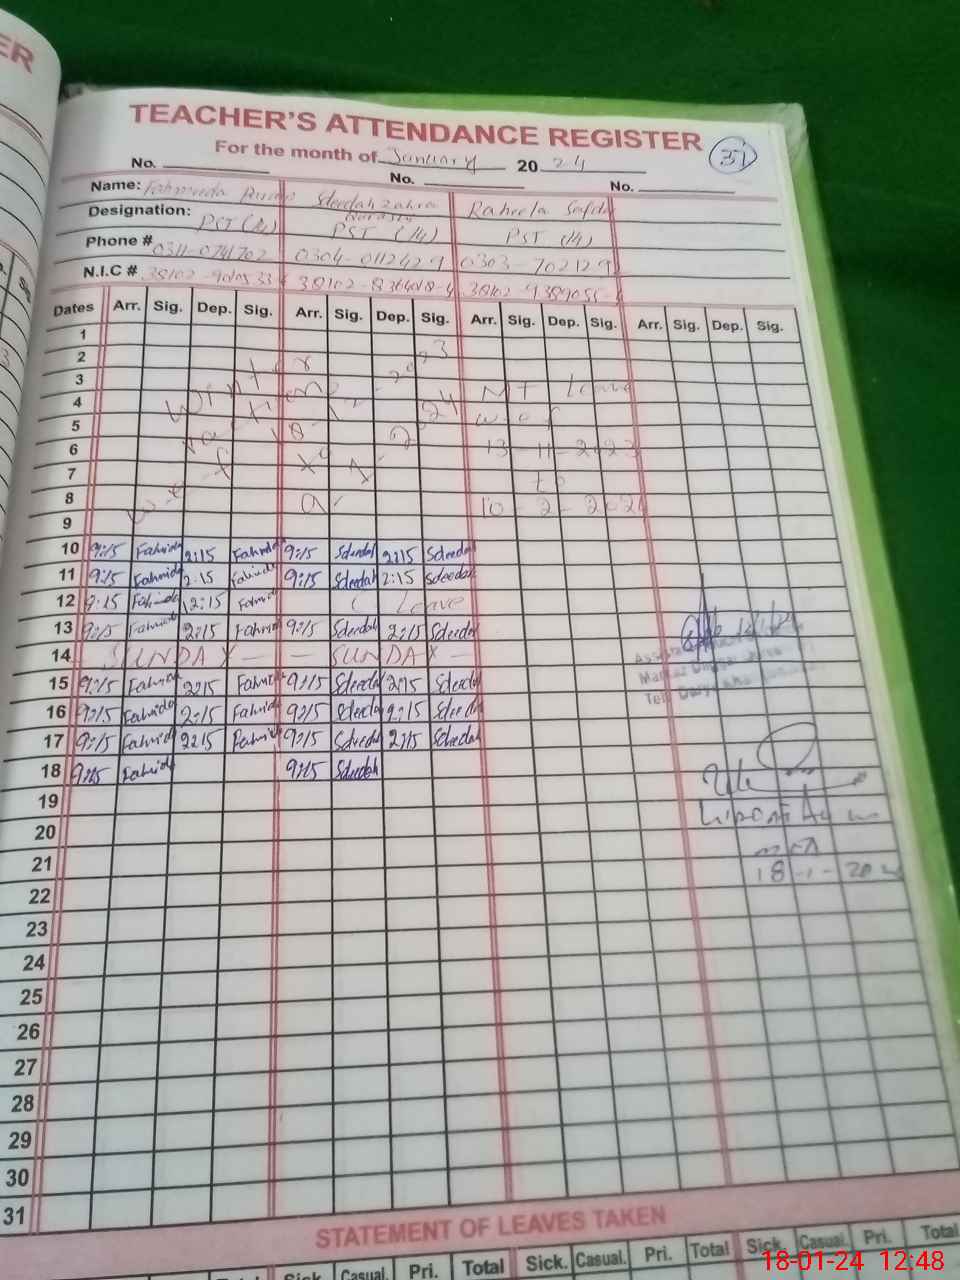 ER
TEACHER'S ATTENDANCE REGISTER
For the month of January 20 24
31
No. No. No.
Name: Fahmida Sdeedah Zahra Raheela
Designation: PST (14) PST (14) PST (14)
Phone # 0311-0741702 0304-0112429 0303-702129
N.I.C # 38102 38102-8364018-4 38102-9389055
Dates Arr. Sig. Dep. Sig. Arr. Sig. Dep. Sig. Arr. Sig. Dep. Sig. Arr. Sig. Dep. Sig.
1
2
3
4
5
6
7
8
9
Winter
vacations
w.e.f 18-12-2023
to 9-1-2024
MT Leave
w.e.f
13-11-2023
to
10-2-2024
10 9:15 Fahmida 2:15 Fahmida 9:15 Sdeedah 2:15 Sdeedah
11 9:15 Fahmida 2:15 Fahmida 9:15 Sdeedah 2:15 Sdeedah
12 9:15 Fahmida 12:15 Fahmida C Leave
13 9:15 Fahmida 2:15 Fahmida 9:15 Sdeedah 2:15 Sdeedah
14 SUNDAY - - SUNDAY -
15 9:15 Fahmida 2:15 Fahmida 9:15 Sdeedah 2:15 Sdeedah
16 9:15 Fahmida 2:15 Fahmida 9:15 Sdeedah 2:15 Sdeedah
17 9:15 Fahmida 2:15 Fahmida 9:15 Sdeedah 2:15 Sdeedah
18 9:15 Fahmida 9:15 Sdeedah
19
20
21
18-1-20
22
23
24
25
26
27
28
29
30
31
STATEMENT OF LEAVES TAKEN
Sick. Casual. Pri. Total Sick. Casual. Pri. Total Sick. Casual. Pri. Total
18-01-24 12:48